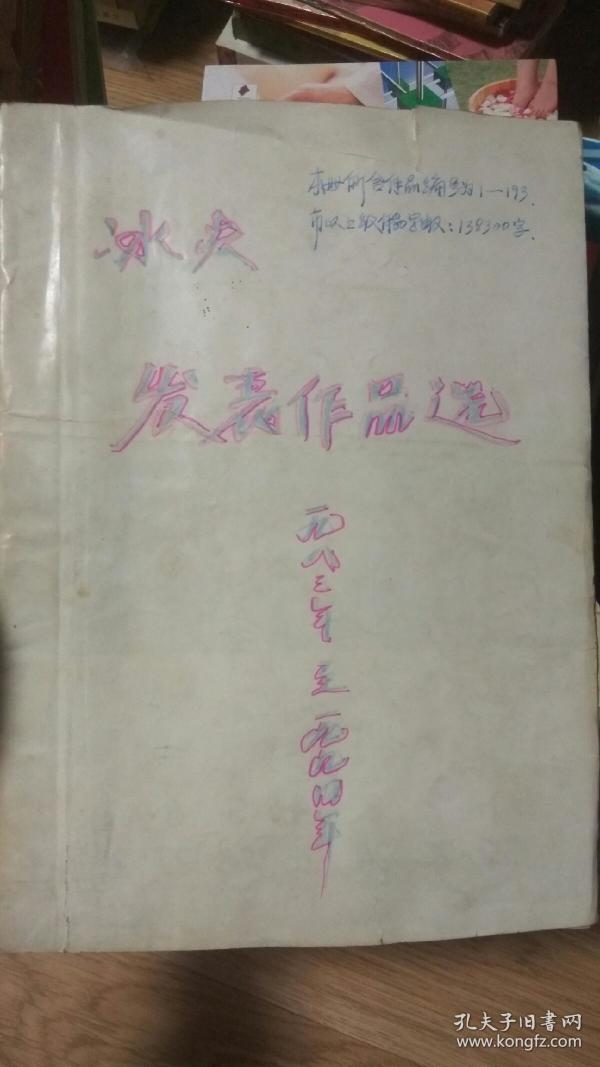 本册所含作品编号为1—193.
市以上段作品字数：138300字.
冰炎
发表作品选
一九八三年至一九九四年
孔夫子旧書网
www.kongfz.com